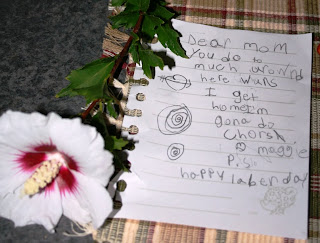 Dear mom
you do to
much uround
here wuns
I get
home Im
gona do
chors
maggie
P.S.
happy laber day